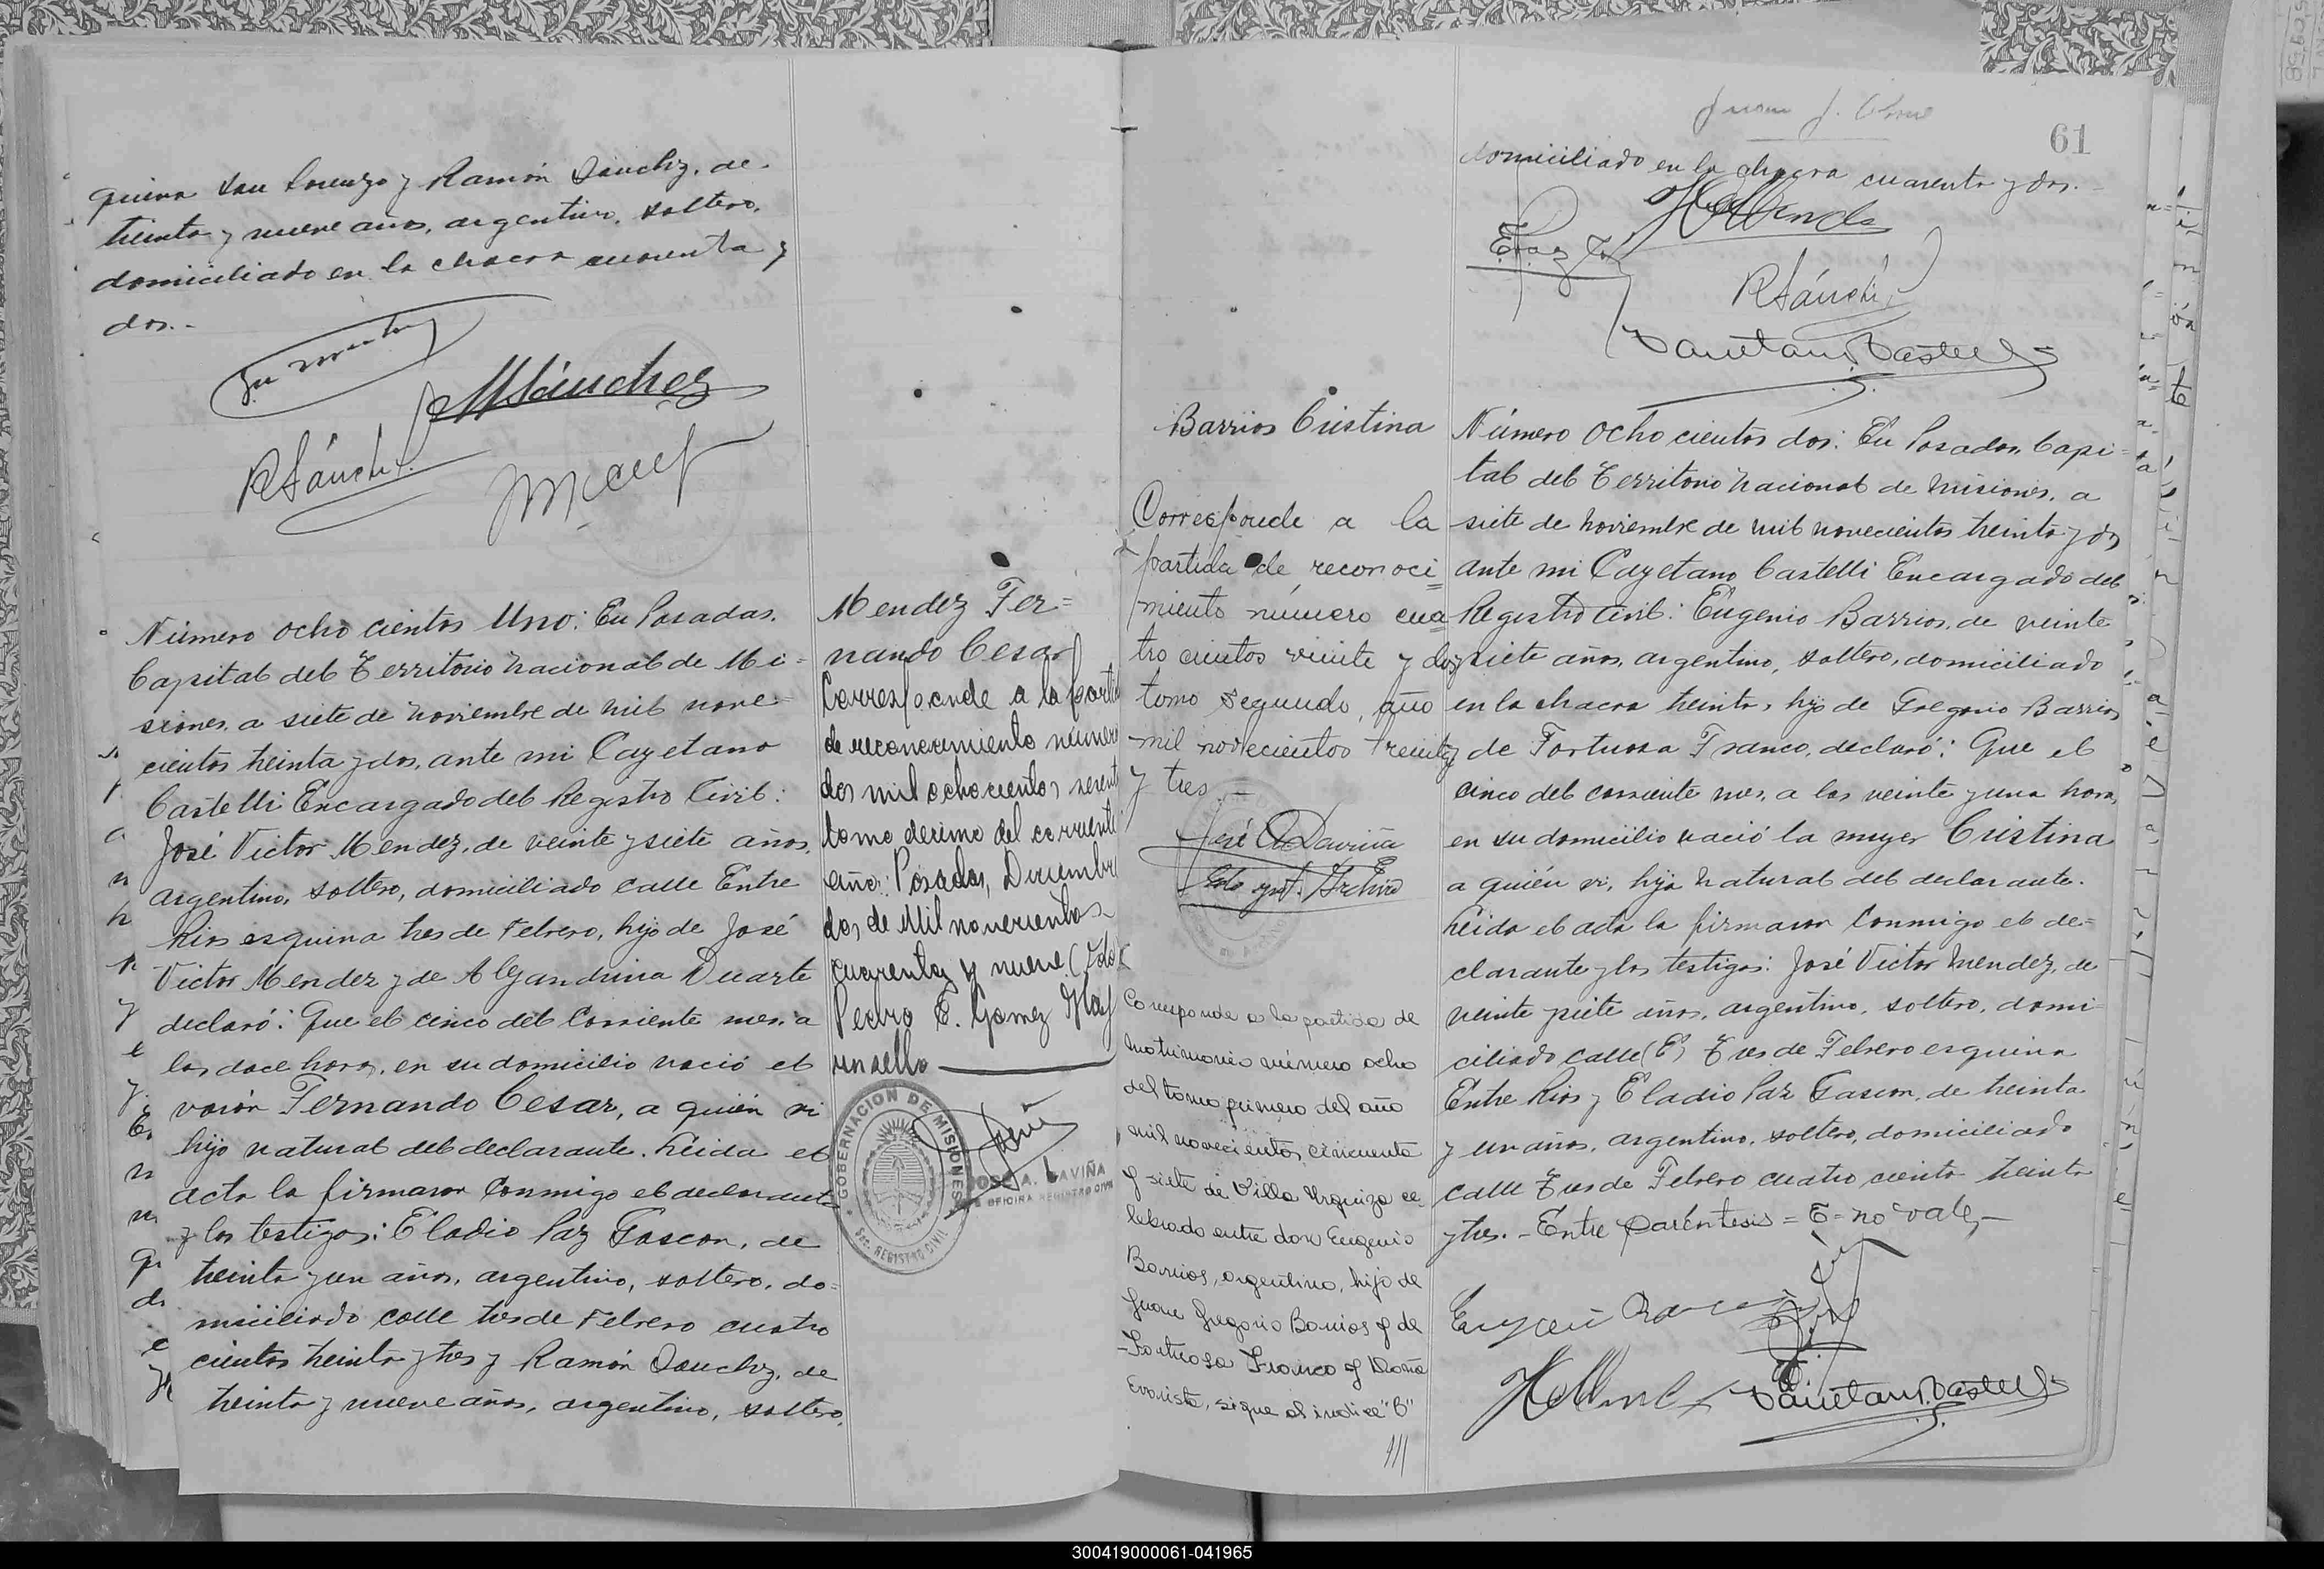 quina San Lorenzo y Ramón Sanchez, de
treinta y nueve años, argentino, soltero,
domiciliado en la chacra cuarenta y
dos.-
MSánchez
RSánchez
Número ocho cientos Uno: En Posadas,
Capital del Territorio Nacional de Mi=
siones, a siete de Noviembre de mil nove=
cientos treinta y dos, ante mi Cayetano
Castelli Encargado del Registro Civil:
José Victor Mendez, de veinte y siete años,
argentino, soltero, domiciliado calle Entre
Rios esquina tres de Febrero, hijo de José
Victor Mendez y de Alejandrina Duarte
declaró: Que el cinco del corriente mes, a
las doce horas, en su domicilio nació el
varón Fernando Cesar, a quién vi
hijo natural del declarante. Leida el
acta la firmaron conmigo el declarante
y los testigos: Eladio Paz Gascon, de
treinta y un años, argentino, soltero, do=
miciliado calle tres de Febrero cuatro
cientos treinta y tres y Ramón Sanchez, de
treinta y nueve años, argentino, soltero,
Mendez Fer=
nando Cesar
Corresponde a la partida
de reconocimiento número
dos mil ochocientos
tomo décimo del corriente
año: Posadas, Diciembre
dos de Mil novecientos
cuarenta y nueve (Fdo)
Pedro E. Gomez Hay
un sello
GOBERNACION DE MISIONES
SEC. REGISTRO CIVIL
JOSE A. DAVIÑA
OFICINA REGISTRO CIVIL
61
domiciliado en la chacra cuarenta y dos.-
EPaz G
RSánchez
Cayetano Castelli
Barrios Cristina
Corresponde a la
partida de reconoci=
miento número cua=
tro cientos veinte y dos
tomo segundo, año
mil novecientos treinta
y tres.-
José A. Daviña
Archivo
Corresponde a la partida de
matrimonio número ocho
del tomo primero del año
mil novecientos cincuenta
y siete de Villa Urquiza ce-
lebrado entre don Eugenio
Barrios, argentino, hijo de
Juan Gregorio Barrios y de
Fortuosa Franco y Doña
Evarista, sigue al indice "B"
///
Número Ocho cientos dos: En Posadas, Capi=
tal del Territorio Nacional de Misiones, a
siete de Noviembre de mil novecientos treinta y dos
ante mi Cayetano Castelli Encargado del
Registro Civil: Eugenio Barrios, de veinte
y siete años, argentino, soltero, domiciliado
en la chacra treinta, hijo de Gregorio Barrios
y de Fortuosa Franco, declaró: Que el
cinco del corriente mes, a las veinte y una horas,
en su domicilio nació la mujer Cristina
a quién vi, hija natural del declarante.
Leida el acta la firmaron conmigo el de=
clarante y los testigos: José Victor Mendez, de
veinte y siete años, argentino, soltero, domi=
ciliado calle (E) Tres de Febrero esquina
Entre Rios y Eladio Paz Gascon, de treinta
y un años, argentino, soltero, domiciliado
calle Tres de Febrero cuatro ciento treinta
y tres.- Entre paréntesis = E = no vale,-
Eugenio Barrios
Cayetano Castelli
300419000061-041965